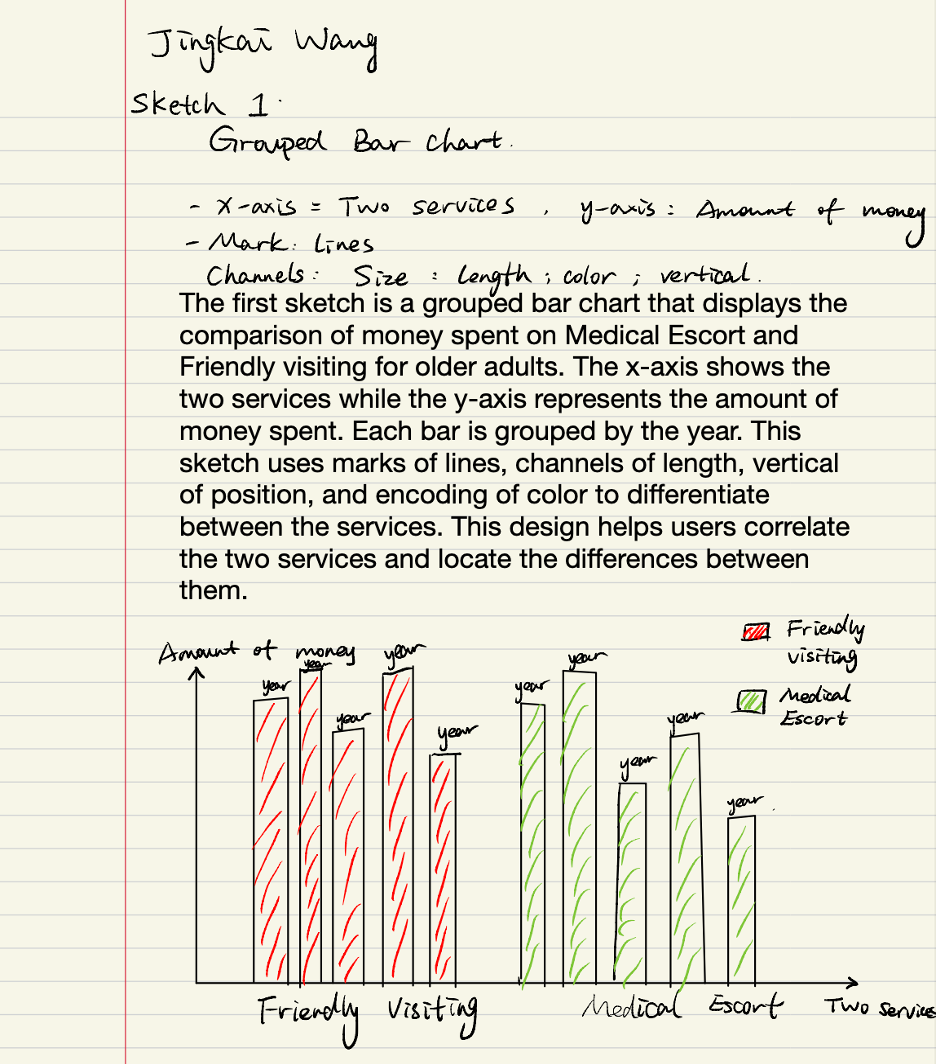 Jingkai Wang
Sketch 1.
Grouped Bar chart.
- x-axis = Two services , y-axis : Amount of money
- Mark: Lines
Channels: Size : length ; color ; vertical.
The first sketch is a grouped bar chart that displays the
comparison of money spent on Medical Escort and
Friendly visiting for older adults. The x-axis shows the
two services while the y-axis represents the amount of
money spent. Each bar is grouped by the year. This
sketch uses marks of lines, channels of length, vertical
of position, and encoding of color to differentiate
between the services. This design helps users correlate
the two services and locate the differences between
them.
Friendly
visiting
Medical
Escort
Amount of money
year
year
year
year
year
year
year
year
year
year
Friendly Visiting
Medical Escort
Two services